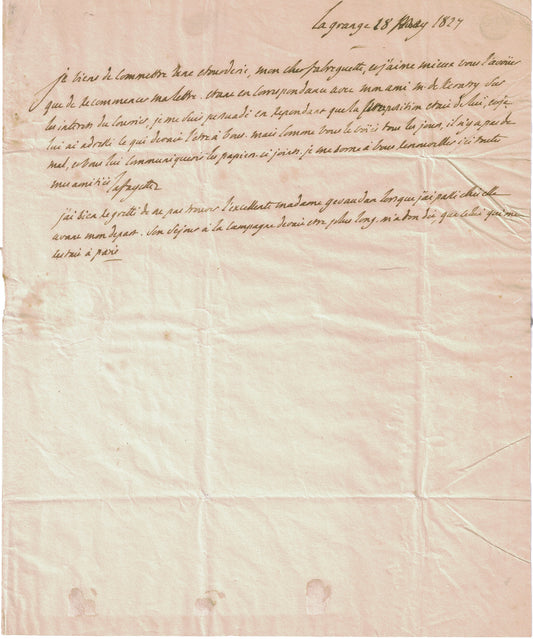 la grange 28 may 1827
je viens de commettre une etourderie, mon cher fabreguette, et j'aime mieux vous l'avouer
que de recommencer ma lettre. etant en correspondance avec mon ami m. de Keratry sur
les interets du Courier, je me suis persuadé en repondant que la proposition etait de lui, et je
lui ai adressé ce qui devait l'etre à vous. mais comme vous le voiés tous les jours, il n'y a pas de
mal, et vous lui communiquerés les papiers ci joints, je me borne à vous renouveller ici toutes
mes amitiés
lafayette
j'ai bien regretté de ne pas trouver l'excellente madame gevaudan lorsque j'ai passé chez elle
avant mon depart. son sejour à la campagne devait etre plus long m'a t'on dit que celui qui me
restait à paris